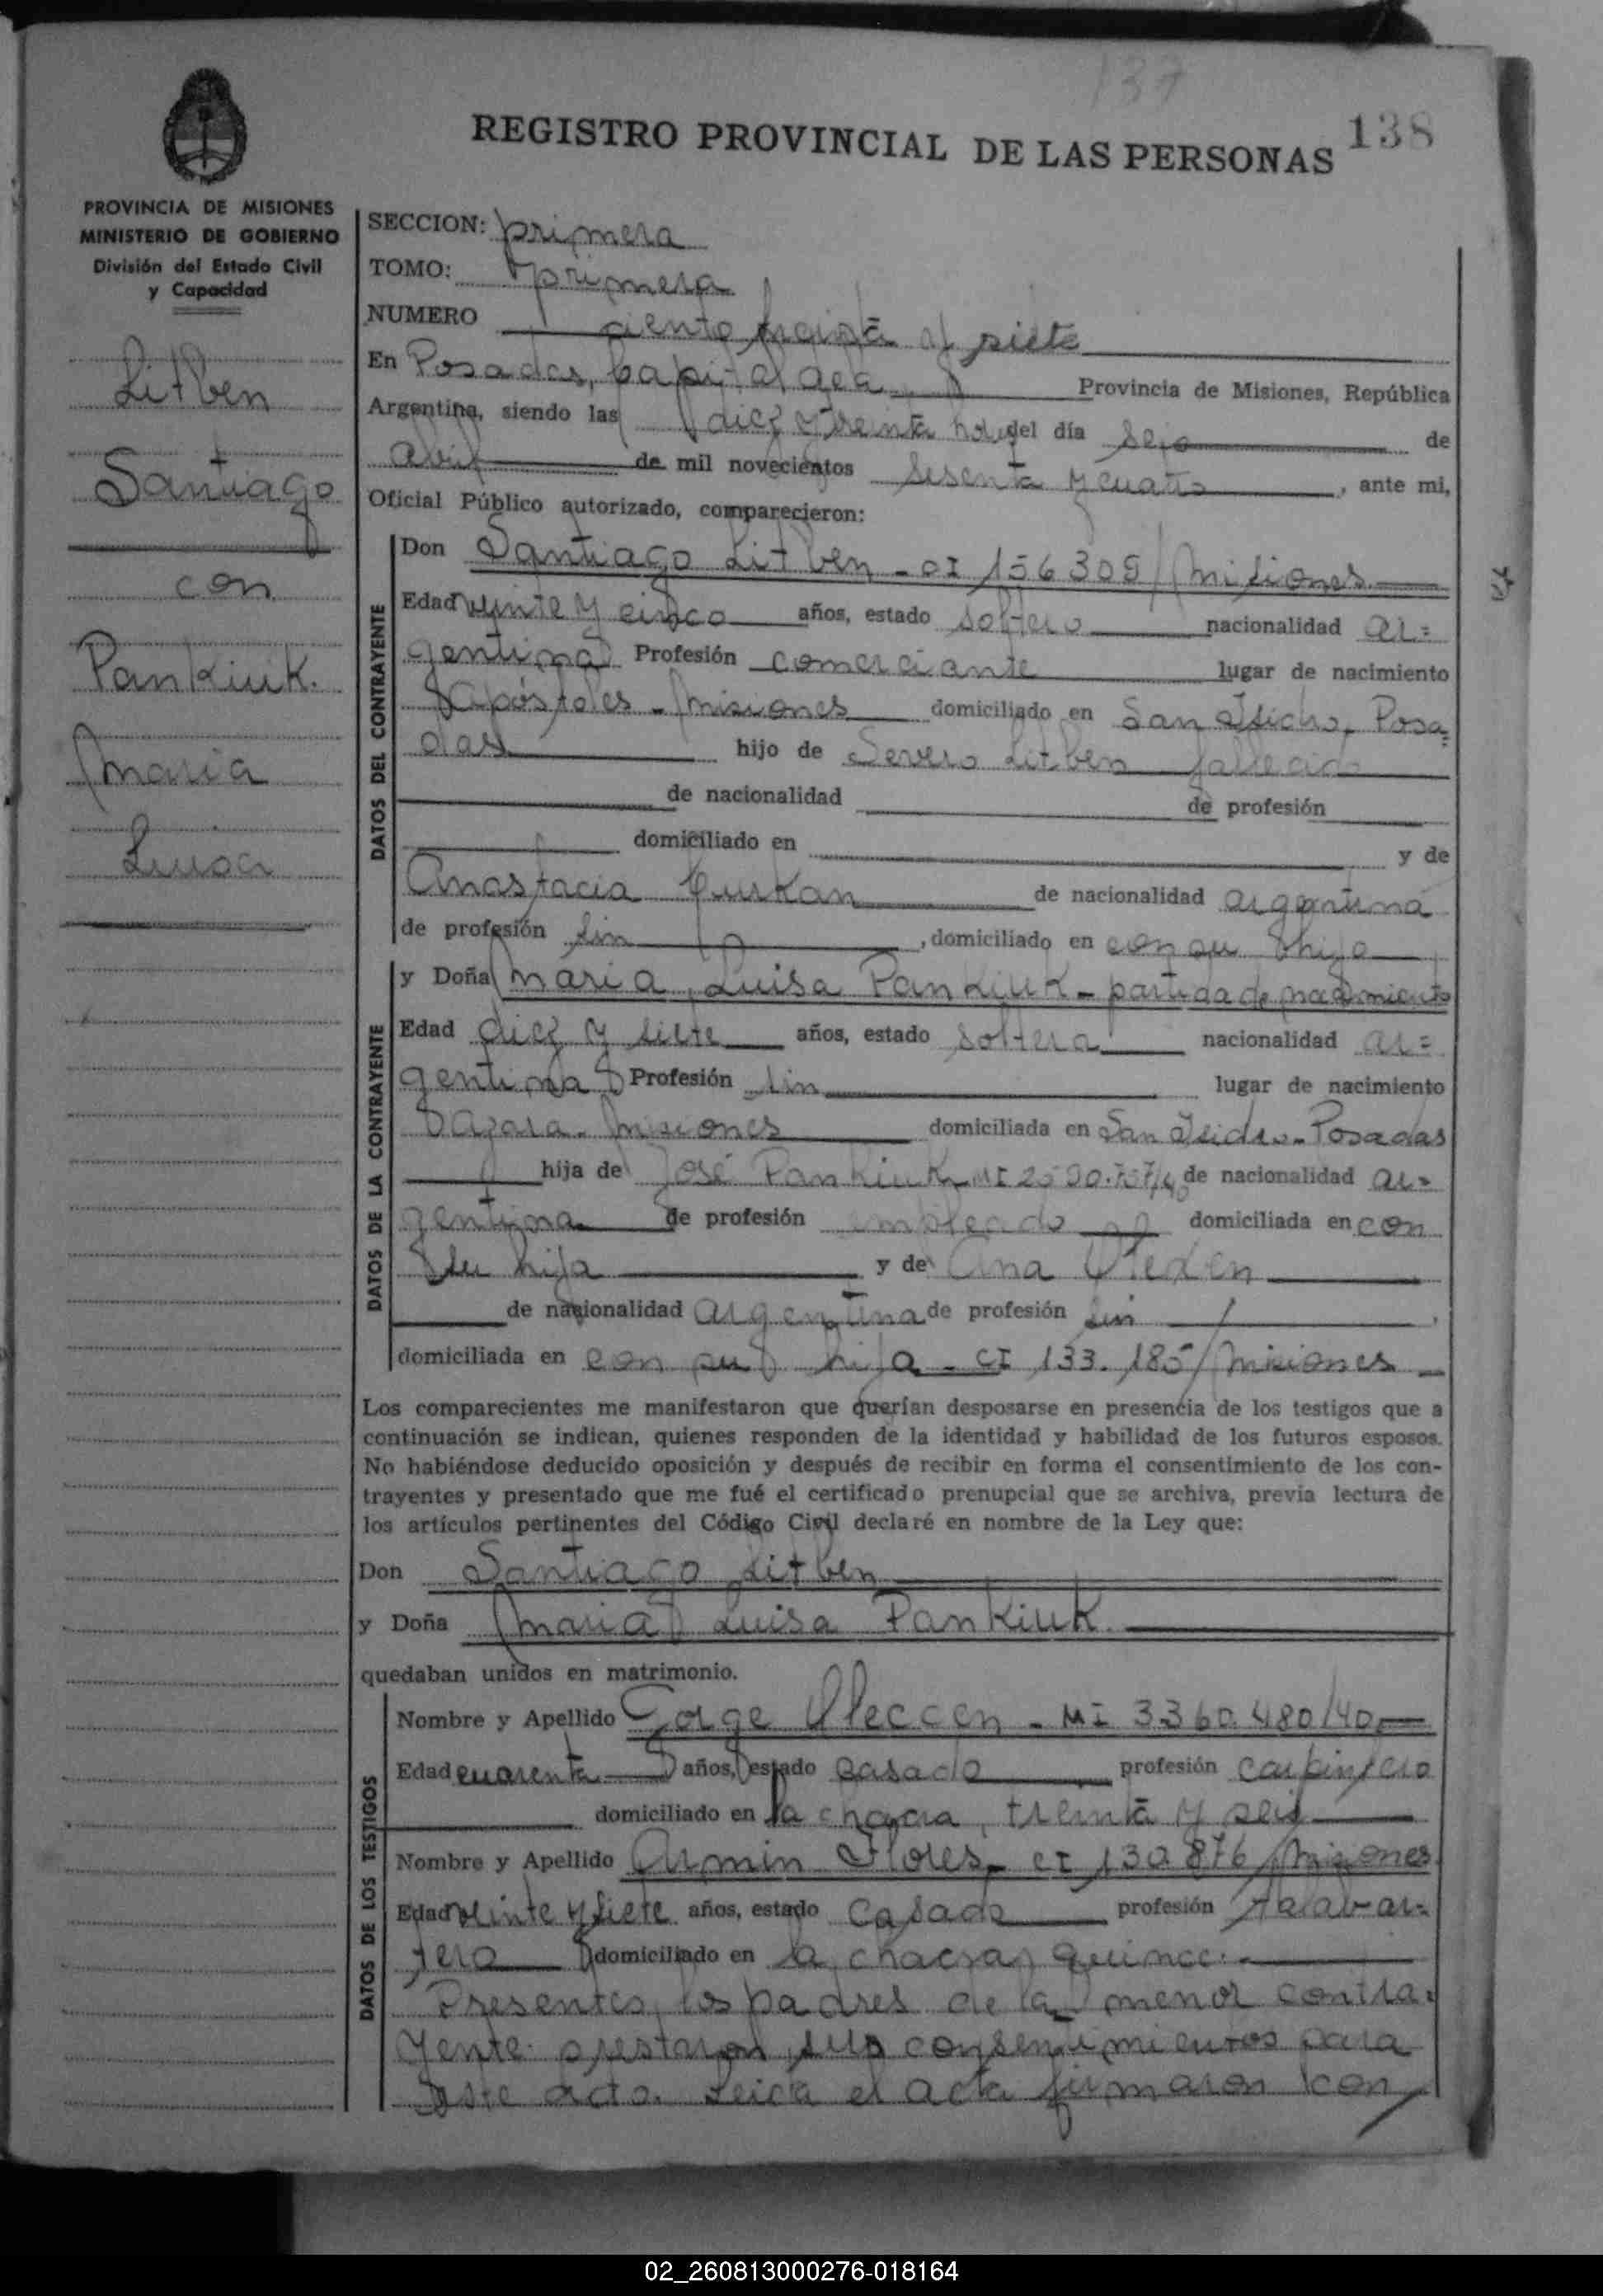 137
REGISTRO PROVINCIAL DE LAS PERSONAS 138
PROVINCIA DE MISIONES
MINISTERIO DE GOBIERNO
División del Estado Civil
y Capacidad
Litben
Santiago
con
Pankiuk.
Maria
Luisa
SECCION: primera
TOMO: primera
NUMERO ciento treinta y siete
En Posadas, Capital de la Provincia de Misiones, República
Argentina, siendo las diez y treinta horas del día seis de
abril de mil novecientos sesenta y cuatro, ante mi,
Oficial Público autorizado, comparecieron:
DATOS DEL CONTRAYENTE
Don Santiago Litben - CI 156309/Misiones
Edad veinte y cinco años, estado soltero nacionalidad ar=
gentina Profesión comerciante lugar de nacimiento
Apóstoles - Misiones domiciliado en San Isidro, Posa=
das hijo de Severo Litben fallecido
de nacionalidad de profesión
domiciliado en y de
Anastacia de nacionalidad argentina
de profesión sin, domiciliado en con su hijo
DATOS DE LA CONTRAYENTE
y Doña Maria Luisa Pankiuk - partida de nacimiento
Edad diez y siete años, estado soltera nacionalidad ar=
gentina Profesión sin lugar de nacimiento
Azara - Misiones domiciliada en San Isidro - Posadas
hija de José Pankiuk MI de nacionalidad ar=
gentina de profesión empleado domiciliada en con
su hija y de Ana Olexen
de nacionalidad argentina de profesión sin,
domiciliada en con su hija - CI 133.185/Misiones
Los comparecientes me manifestaron que querían desposarse en presencia de los testigos que a
continuación se indican, quienes responden de la identidad y habilidad de los futuros esposos.
No habiéndose deducido oposición y después de recibir en forma el consentimiento de los con-
trayentes y presentado que me fué el certificado prenupcial que se archiva, previa lectura de
los artículos pertinentes del Código Civil declaré en nombre de la Ley que:
Don Santiago Litben
y Doña Maria Luisa Pankiuk.
quedaban unidos en matrimonio.
DATOS DE LOS TESTIGOS
Nombre y Apellido Jorge Oleccen - MI 3360.480/40
Edad cuarenta años, estado casado profesión carpintero
domiciliado en la chacra, treinta y seis
Nombre y Apellido Armin Flores - CI 130.876/Misiones
Edad veinte y siete años, estado casado profesión talabar=
tero domiciliado en la chacra quince.
Presentes los padres de la menor contra=
yente prestaron sus consentimientos para
este acto. Leida el acta firmaron con
02_260813000276-018164